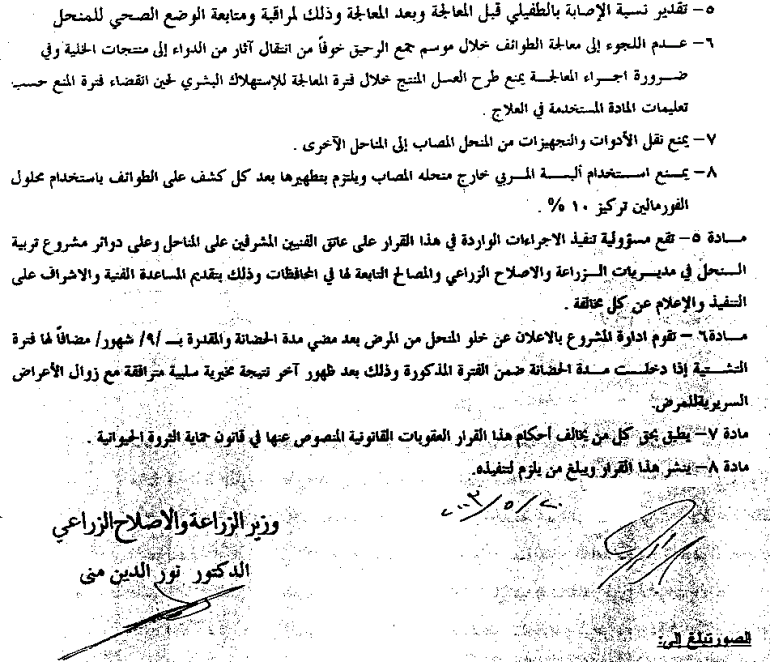 ٥- تقدير نسبة الإصابة بالطفيلي قبل المعالجة وبعد المعالجة وذلك لمراقبة ومتابعة الوضع الصحي للمنحل
٦- عدم اللجوء إلى معالجة الطوائف خلال موسم جمع الرحيق خوفاً من انتقال آثار من الدواء إلى منتجات الخلية وفي
ضرورة اجراء المعالجة يمنع طرح العسل المنتج خلال فترة المعالجة للإستهلاك البشري لحين انقضاء فترة المنع حسب
تعليمات المادة المستخدمة في العلاج .
٧- يمنع نقل الأدوات والتجهيزات من المنحل المصاب إلى المناحل الآخرى .
٨- يمنع استخدام ألبسة المربي خارج منحله المصاب ويلتزم بتطهيرها بعد كل كشف على الطوائف باستخدام محلول
الفورمالين تركيز ١٠ % .
مادة ٥- تقع مسؤولية تنفيذ الاجراءات الواردة في هذا القرار على عاتق الفنيين المشرفين على المناحل وعلى دوائر مشروع تربية
النحل في مديريات الزراعة والاصلاح الزراعي والمصالح التابعة لها في المحافظات وذلك بتقديم المساعدة الفنية والاشراف على
التنفيذ والإعلام عن كل مخالفة .
مادة٦ - تقوم ادارة المشروع بالاعلان عن خلو المنحل من المرض بعد مضي مدة الحضانة والمقدرة بـ /٩/ شهور/ مضافاً لها فترة
التشتية إذا دخلت مدة الحضانة ضمن الفترة المذكورة وذلك بعد ظهور آخر نتيجة مخبرية سلبية مترافقة مع زوال الأعراض
السريريةللمرض.
مادة ٧- يطبق بحق كل من يخالف أحكام هذا القرار العقوبات القانونية المنصوص عنها في قانون حماية الثروة الحيوانية .
مادة ٨- ينشر هذا القرار ويبلغ من يلزم لتنفيذه.
٢٠٠٣/٥/٢٠
وزير الزراعة والاصلاح الزراعي
الدكتور نور الدين منى
الصورتبلغ إلى: